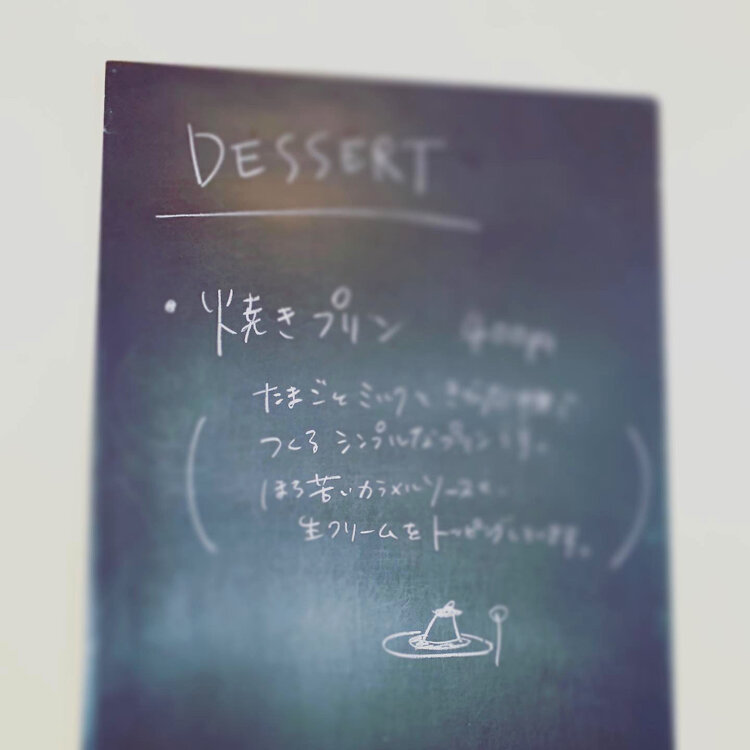 DESSERT
・焼きプリン
たまごとミルク、
つくるシンプルなプリンです。
ほろ苦いカラメルソースと、
生クリームをトッピングしています。